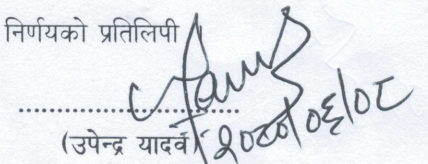 निर्णयको प्रतिलिपी
........................................
(उपेन्द्र यादव) २०८०/०६/०८